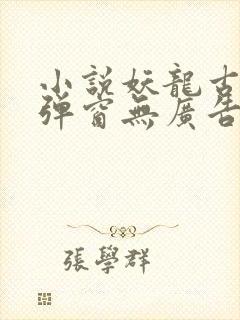 小說妖龍古
彈窗無廣告
張學群